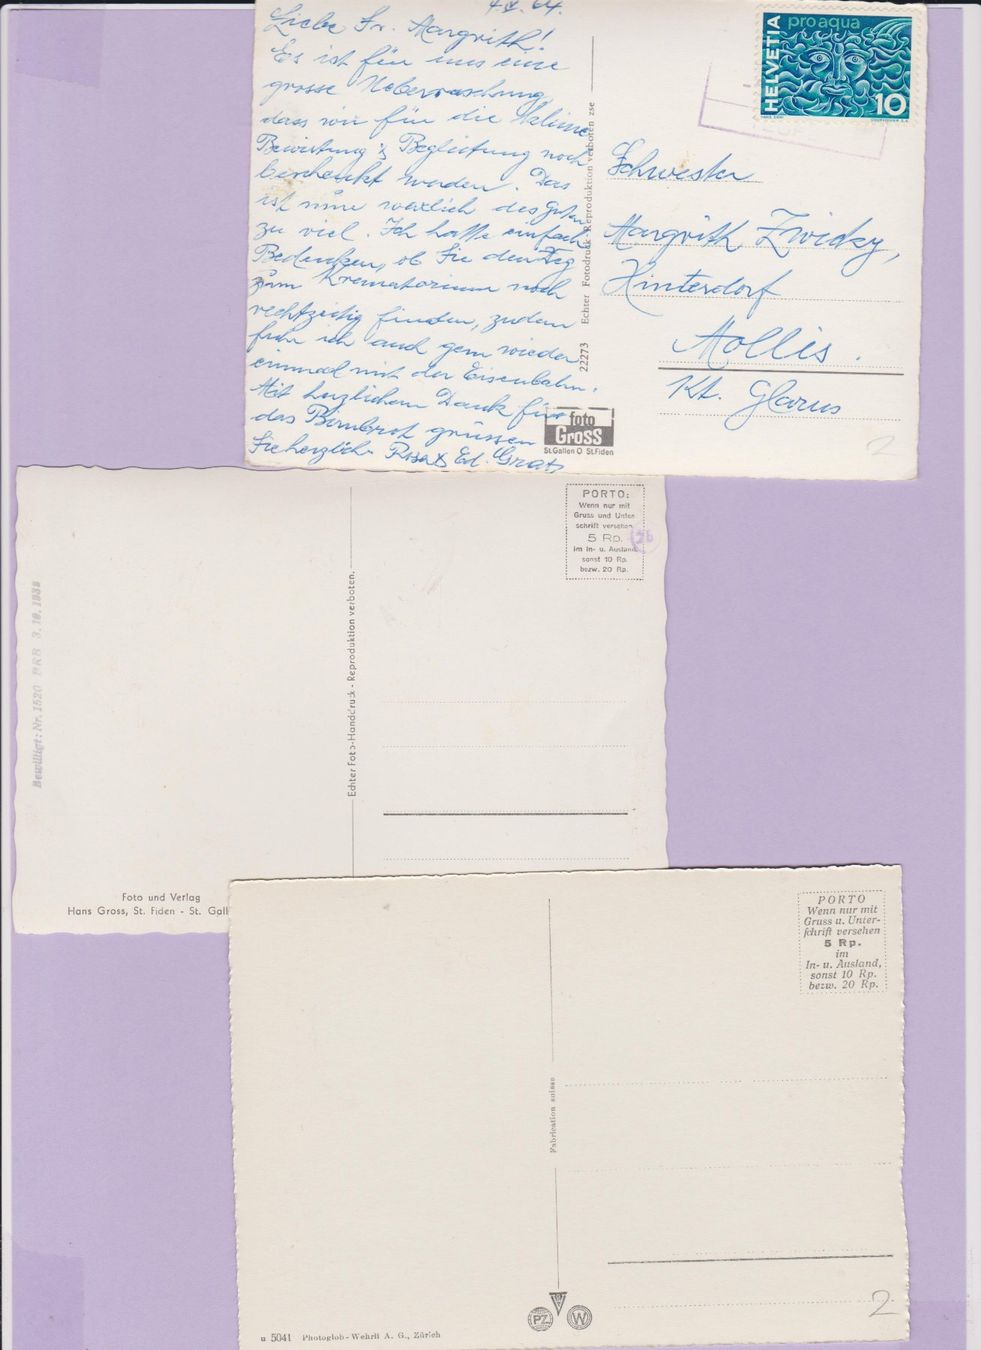 4.V.64.
Liebe Sr. Margrith!
Es ist für uns eine
grosse Ueberraschung,
dass wir für die kleine
Bewirtung & Begleitung noch
beschenkt werden. Das
ist nun wirklich des Guten
zu viel. Ich hatte einfach
Bedenken, ob Sie den Weg
zum Krematorium noch
rechtzeitig finden, zudem
fuhr ich auch gern wieder
einmal mit der Eisenbahn.
Mit herzlichem Dank für
das Birnbrot grüssen
Sie herzlich Rosa & Ed.
22273 Echter Fotodruck Reproduktion verboten zse
HELVETIA
pro aqua
10
Schwester
Margrith Zwicky,
Hinterdorf
Mollis.
Kt. Glarus
foto
Gross
St.Gallen O St.Fiden
2
Bewilligt: Nr. 1520 BRB 3.10.1939
Echter Foto-Handdruck - Reproduktion verboten.
PORTO:
Wenn nur mit
Gruss und Unter-
schrift versehen
5 Rp.
im In- u. Ausland
sonst 10 Rp.
bezw. 20 Rp.
Foto und Verlag
Hans Gross, St. Fiden - St. Gall
PORTO
Wenn nur mit
Gruss u. Unter-
schrift versehen
5 Rp.
im
In- u. Ausland,
sonst 10 Rp.
bezw. 20 Rp.
Fabrication suisse
PZ
W
2
u 5041 Photoglob-Wehrli A. G., Zürich